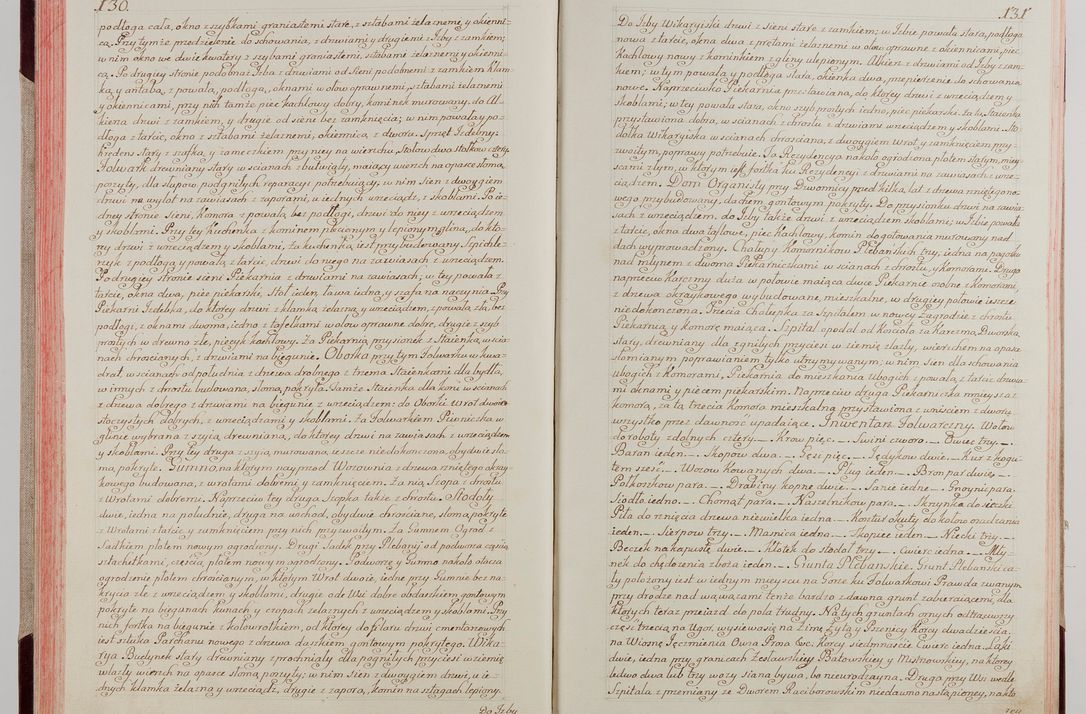 130.
podłoga cała, okno z szybkami graniastemi stare, z sztabami żelaznemi, y okienni-
cą. Przy tymże przedzielenie do schowania, z drzwiami y drugiemi z Izby z zamkiem;
w nim okno we dwie kwatery z szybami graniastemi, sztabami żelaznemi y okienni-
cą. Po drugiey stronie podobna Izba z drzwiami od sieni podobnemi z zamkiem klam-
ką y antabą, z powałą, podłogą, oknami w ołow oprawnemi, sztabami żelaznemi
y okiennicami, przy nich tamże piec kachlowy dobry, kominek murowany. do Al-
kierza drzwi z zamkiem, y drugie od sieni bez zamknięcia; w nim powała y po-
dłoga z tarcic, okno z sztabami żelaznemi, okiennicą, z dworu. Sprzęt Izdebny:
kredens stary z szafką, y zameczkiem przy niey na wierzchu. Stołow dwa stołkow cztery.
Folwark drewniany stary w scianach zbutwiały, maiący wierzch na opasce słomą,
poszyty, dla słupow podgniłych reparacyi potrzebuiący. w nim sien z dwoygiem
drzwi na wylot na zawiasach z zaporami, u iednych wrzeciądz, z skoblami. Po ie-
dney stronie sieni, Komora z powałą bez podłogi, drzwi do niey z wrzeciądzem
y skoblami. Przy tey Kuchenka z kominem plecionym y lepionym z gliną, do kto-
rey drzwi z wrzeciądzem y skoblami, za kuchenką iest przybudowany Szpichle-
rzyk z podłogą y powałą z tarcic, drzwi do niego na zawiasach z wrzeciądzem.
Po drugiey stronie sieni Piekarnia z drzwiami na zawiasach; w tey powała z
tarcic, okna dwa, piec piekarski, stoł ieden, ława iedna, y szafa na naczynia. Przy
Piekarni Izdebka, do ktorey drzwi z klamką żelazną y wrzeciądzem, z powałą zła, bez
podłogi, z oknami dwoma, iedno z tafelkami w ołow oprawne dobre, drugie z szyb
prostych w drewno złe, piecyk kachlowy. Za Piekarnią przysionek z Staienką, w scia-
nach chrościanych, z drzwiami na biegunie. Oborka przy tym Folwarku w kwa-
drat, w scianach od południa z drzewa drobnego z trzema Staienkami dla bydła,
w innych z chrostu budowana, słomą pokryta. Tamże Staienka dla koni w scianach
z drzewa dobrego z drzwiami na biegunie z wrzeciądzem: do Oborki Wrot dwoie
stoczystych dobrych, z wrzeciądzami y skoblami. Za Folwarkiem Piwniczka w
glinie wybrana z szyią drewnianą, do ktorey drzwi na zawiasach z wrzeciądzem
y skoblami. Przy tey druga z szyią, murowana, ieszcze nie dokończona, obydwie sło-
mą pokryte. Gumno, na ktorym nayprzod Wozownia z drzewa rżniętego okray-
kowego budowana, z wrotami dobremi y zamknięciem. Za nią Szopa z chrostu
z Wrotami dobremi. Naprzeciw tey druga Szopka także z chrostu. Stodoły
dwie, iedna na południe, druga na wschod, obydwie chrościane, słomą pokryte
z Wrotami z tarcic y zamknięciem przy nich przyzwoitym. Za Gumnem Ogrod z
Sadkiem płotem nowym ogrodzony. Drugi Sadek przy Plebanij od podworza częścią
sztachetkami, częścią płotem nowym ogrodzony. Podworze y Gumno nakoło otacza
ogrodzenie płotem chrościanym, w ktorym Wrot dwoie, iedne przy Gumnie bez na-
krycia złe z wrzeciądzem y skoblami, drugie ode Wsi dobre obdaszkiem gontowym
pokryte na biegunach kunach y czopach żelaznych z wrzeciądzem y skoblami. Przy
nich fortka na biegunie z kołowrotkiem, od ktorey do filaru drzwi cmentarzowych
iest sztuka Parkanu nowego z drzewa daszkiem gontowym pokrytego. Wika-
rya Budynek stary drewniany z prochniały dla pogniłych przyciesi w ziemię
wlazły wierzch na opasce słomą poszyty; w nim Sien z dwoygiem drzwi, u ie-
dnych klamka żelazna y wrzeciądz, drugie z zaporą, komin na sztagach lepiony.
Do Izby
131
Do Izby Wikaryiski drzwi z sieni stare z zamkiem; w Izbie powała stara, podłoga
nowa z tarcic, okna dwa z prętami żelaznemi w ołow oprawne z okiennicami, piec
kachlowy nowy z kominkiem z gliny ulepionym. Alkierz z drzwiami od Izby z zam-
kiem; w tym powała y podłoga stara, okienka dwa, przepierzenie do schowania
nowe. Naprzeciwko Piekarnia przestawiana, do ktorey drzwi z wrzeciądzem y
skoblami; w tey powała stara, okno szyb prostych iedno, piec piekarski. Za tą Staienka
przystawiona dobra, w scianach z chrostu z drzwiami wrzeciądzem y skoblami. Sto-
dołka Wikaryiska w scianach chrościana, z dwoygiem wrot y zamknięciem przy-
zwoitym, poprawy potrzebuie. Ta Rezydencya nakoło ogrodzona płotem starym, miey-
scami złym, w ktorym iest fortka ku Rezydencyi z drzwiami na zawiasach z wrze-
ciądzem. Dom Organisty przy Dzwonnicy przed kilka lat z drzewa rzniętego no-
wego przybudowany, dachem gontowym pokryty. Do przysionku drzwi na zawia-
sach z wrzeciądzem, do Izby także drzwi z wrzeciądzem skoblami; w Izbie powała
z tarcic, okna dwa taflowe, piec kachlowy, komin do gotowania murowany nad
dach wyprowadzony. Chałupy Komornikow Plebanskich trzy, iedna na pagorku
nad młynem z dwoma Piekarniczkami w scianach z chrostu, y Komorami. Druga
naprzeciw Karczmy duża w połowie maiąca dwie Piekarnie osobne z komorami,
z drzewa okraykowego wybudowane, mieszkalne, w drugiey połowie ieszcze
niedokończona. Trzecia Chałupka za Szpitalem w nowey Zagrodzie z chrostu
Piekarnią y komorę maiąca. Szpital opodal od Kościoła za Karczmą Dworską,
stary, drewniany dla zgniłych przyciesi w ziemię zlazły, wierzchem na opasce
słomianym poprawianiem tylko utrzymywanym; w nim Sien dla schowania
Ubogich z Komorami, Piekarnia do mieszkania Ubogich z powałą z tarcic drzwia-
mi oknami y piecem piekarskim. Naprzeciw druga Piekarniczka mnieysza z
komorą, za tą trzecia Komora mieszkalna przystawiona z wniściem z dworu
wszystko przez dawność upadaiące. Inwentarz Folwarczny. Wołow
do roboty zdolnych cztery. _. Krow pięc. _. Swini czworo. _. Owiec trzy. _.
Baran ieden. _. Skopow dwa. _. Gęsi pięc. _. Jędykow dwie. _. Kur z kogu-
tem sześć. _. Wozow Kowanych dwa. _. Pług ieden. _. Bron par dwie. _.
Połkoszkow para. _. Drabiny kopne dwie. _. Sanie iedne. _. Gnoynic para.
Siodło iedno. _. Chomąt para. _. Naszelnikow para. _. Skrzynka do sieczki.
Piła do rznięcia drzewa niewielka iedna. _. Kosztur okuty do kołow osadzania
ieden. _. Sierpow trzy. _. Maznica iedna. _. Skopiec ieden. _. Niecki trzy. _.
Beczek na kapustę dwie. _. Kłotek do stodoł trzy. _. Cwierc iedna. _. Mły-
nek do chędożenia zboża ieden. _. Grunta Plebanskie. Grunt Plebanski ca-
ły położony iest w iednym mieyscu na Gorze ku Folwarkowi Prawda zwanym
przy drodze nad wąwozami tenże bardzo z dawna grunt zabieraiącemi, dla
ktorych teraz przeiazd do pola trudny. Na tych gruntach, z ktorych odtrąciwszy
część trzecią na Ugor, wysiewa się na Zimę Żyta y Pszenicy Korcy dwadzieścia,
na Wiosnę Jęczmienia Owsa Prosa &c. Korcy siedmnaście Cwierc iedna. Łąki
dwie, iedna przy granicach Zesławskiey Batowskiey y Mistrzowskiey, na ktorey
ledwo dwa lub trzy wozy siana bywa, bo nieurodzayna. Druga przy Wsi wedle
Szpitala z przemiany ze Dworem Raciborowskim niedawno nastąpioney, na kto
rey